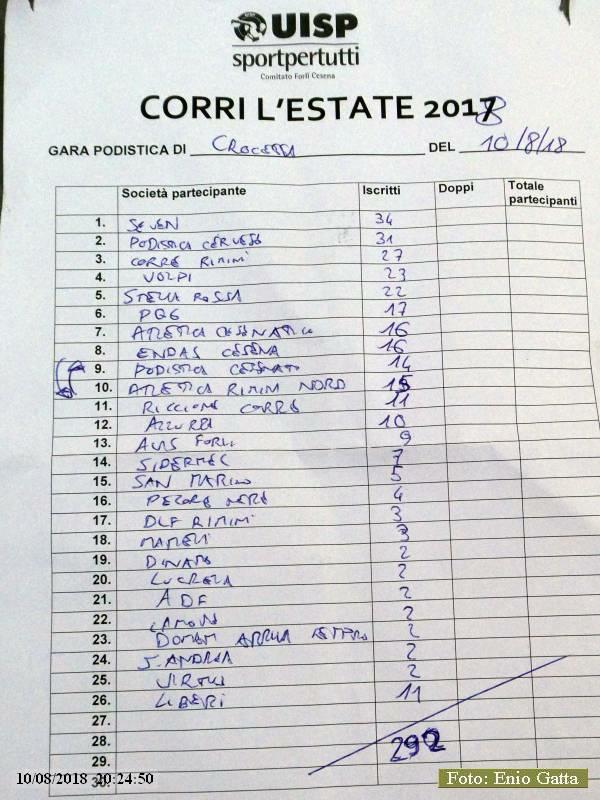 UISP
sportpertutti
Comitato Forlì Cesena
CORRI L'ESTATE 2018
GARA PODISTICA DI CROCETTA DEL 10/8/18
Società partecipante Iscritti Doppi Totale partecipanti
1. SEVEN 34
2. PODISTICA CERVESE 31
3. CORRE RIMINI 27
4. VOLPI 23
5. STELLA ROSSA 22
6. 17
7. ATLETICA CESENATICO 16
8. ENDAS CESENA 16
9. PODISTICA CESENATE 14
10. ATLETICA RIMINI NORD 15
11. RICCIONE CORRE 11
12. AZZURRA 10
13. AVIS FORLI 9
14. SIDERMEC 7
15. SAN MARINO 5
16. PECORE NERE 4
17. DLF RIMINI 3
18. MAMELI 3
19. DINAMO 2
20. 2
21. 2
22. LAMONE 2
23. 2
24. S. ANDREA 2
25. VIRTUS 2
26. LIBERI 11
27.
28. 292
29.
30.
10/08/2018 20:24:50
Foto: Enio Gatta